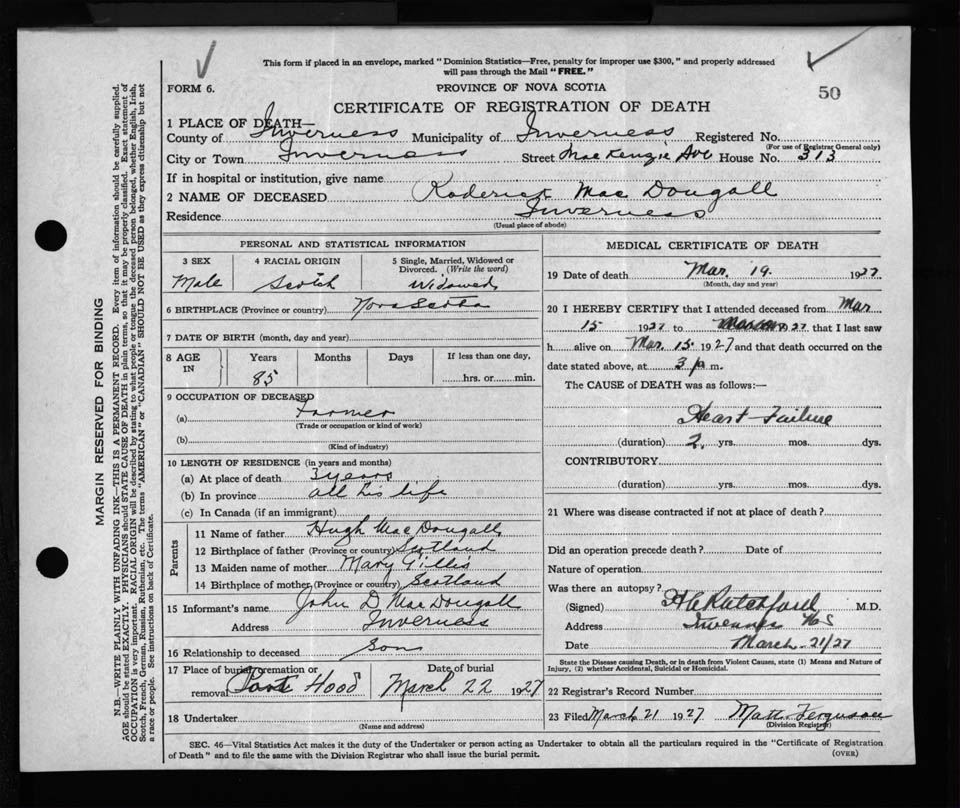 This form if placed in an envelope, marked "Dominion Statistics—Free, penalty for improper use $300," and properly addressed
will pass through the Mail "FREE."
FORM 6.
PROVINCE OF NOVA SCOTIA
50
CERTIFICATE OF REGISTRATION OF DEATH
1 PLACE OF DEATH—
County of Inverness Municipality of Inverness Registered No.
(For use of Registrar General only)
City or Town Inverness Street MacKengie Ave House No. 313
If in hospital or institution, give name
2 NAME OF DECEASED Roderick MacDougall
Residence Inverness
(Usual place of abode)
PERSONAL AND STATISTICAL INFORMATION
3 SEX 4 RACIAL ORIGIN 5 Single, Married, Widowed or
Divorced. (Write the word)
Male Scotch Widowed
6 BIRTHPLACE (Province or country) Nova Scotia
7 DATE OF BIRTH (month, day and year)
8 AGE IN Years Months Days If less than one day,
85 hrs. or min.
9 OCCUPATION OF DECEASED
(a) Farmer
(Trade or occupation or kind of work)
(b)
(Kind of industry)
10 LENGTH OF RESIDENCE (in years and months)
(a) At place of death 3 years
(b) In province all his life
(c) In Canada (if an immigrant)
Parents
11 Name of father Hugh MacDougall
12 Birthplace of father (Province or country) Scotland
13 Maiden name of mother Mary Gillis
14 Birthplace of mother (Province or country) Scotland
15 Informant's name John D. MacDougall
Address Inverness
16 Relationship to deceased Son
17 Place of burial, cremation or Date of burial
removal Port Hood March 22 1927
18 Undertaker
(Name and address)
MEDICAL CERTIFICATE OF DEATH
19 Date of death Mar. 19. 1927
(Month, day and year)
20 I HEREBY CERTIFY that I attended deceased from Mar
15 1927 to 1927 that I last saw
h alive on Mar. 15. 1927 and that death occurred on the
date stated above, at 3 p.m.
The CAUSE OF DEATH was as follows:—
Heart Failure
(duration) 2. yrs. mos. dys.
CONTRIBUTORY
(duration) yrs. mos. dys.
21 Where was disease contracted if not at place of death?
Did an operation precede death? Date of
Nature of operation
Was there an autopsy?
(Signed) M.D.
Address Inverness N S
Date March 21/27
State the Disease causing Death, or in death from Violent Causes, state (1) Means and Nature of
Injury, (2) whether Accidental, Suicidal or Homicidal.
22 Registrar's Record Number
23 Filed March 21 1927 Matt. Ferguson
(Division Registrar)
SEC. 46—Vital Statistics Act makes it the duty of the Undertaker or person acting as Undertaker to obtain all the particulars required in the "Certificate of Registration
of Death" and to file the same with the Division Registrar who shall issue the burial permit.
(OVER)
MARGIN RESERVED FOR BINDING
N.B.—WRITE PLAINLY WITH UNFADING INK—THIS IS A PERMANENT RECORD. Every item of information should be carefully supplied.
AGE should be stated EXACTLY. PHYSICIANS should STATE CAUSE OF DEATH in plain terms, so that it may be properly classified. Exact statement of
OCCUPATION is very important. RACIAL ORIGIN will be described by stating to what people or tongue the deceased person belonged, whether English, Irish,
Scotch, French, German, Russian, Ruthenian, etc. The terms "AMERICAN" or "CANADIAN" SHOULD NOT BE USED as they express citizenship but not
a race or people. See instructions on back of Certificate.